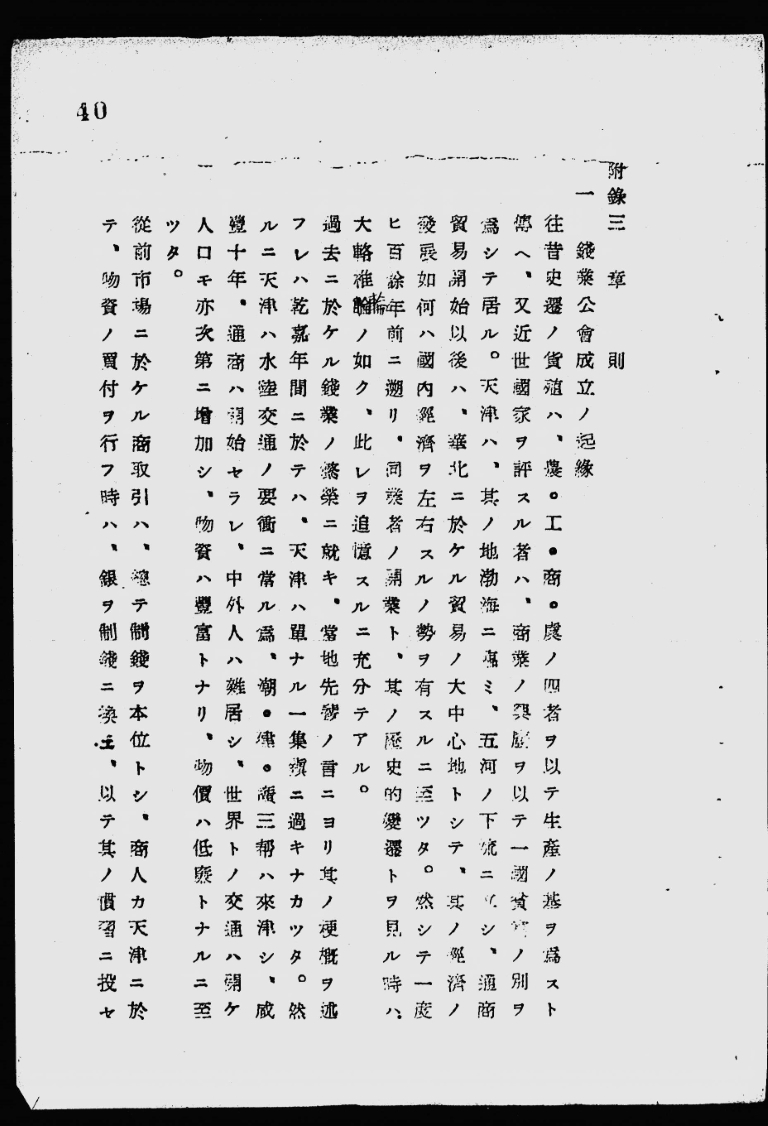 40
附錄三 章 則
一 錢業公會成立ノ起緣
往昔史遷ノ貨殖ハ、農。工。商。虞ノ四者ヲ以テ生產ノ基ヲ爲スト
傳ヘ、又近世國家ヲ評スル者ハ、商業ノ興廢ヲ以テ一國貧富ノ別ヲ
爲シテ居ル。天津ハ、其ノ地渤海ニ臨ミ、五河ノ下流ニ位シ、通商
貿易開始以後ハ、華北ニ於ケル貿易ノ大中心地トシテ、其ノ經濟ノ
發展如何ハ國內經濟ヲ左右スルノ勢ヲ有スルニ至ツタ。然シテ一度
ヒ百餘年前ニ遡リ、同業者ノ開業ト、其ノ歷史的變遷トヲ見ル時ハ、
大輅椎輪ノ如ク、此レヲ追憶スルニ充分テアル。
過去ニ於ケル錢業ノ繁榮ニ就キ、當地先輩ノ言ニヨリ其ノ梗概ヲ述
フレハ乾嘉年間ニ於テハ、天津ハ單ナル一集鎭ニ過キナカツタ。然
ルニ天津ハ水陸交通ノ要衝ニ當ル爲、潮。建。廣三幇ハ來津シ、咸
豐十年、通商ハ開始セラレ、中外人ハ雜居シ、世界トノ交通ハ開ケ
人口モ亦次第ニ增加シ、物資ハ豐富トナリ、物價ハ低廉トナルニ至
ツタ。
從前市場ニ於ケル商取引ハ、總テ制錢ヲ本位トシ、商人カ天津ニ於
テ、物資ノ買付ヲ行フ時ハ、銀ヲ制錢ニ換ヱ、以テ其ノ慣習ニ投セ